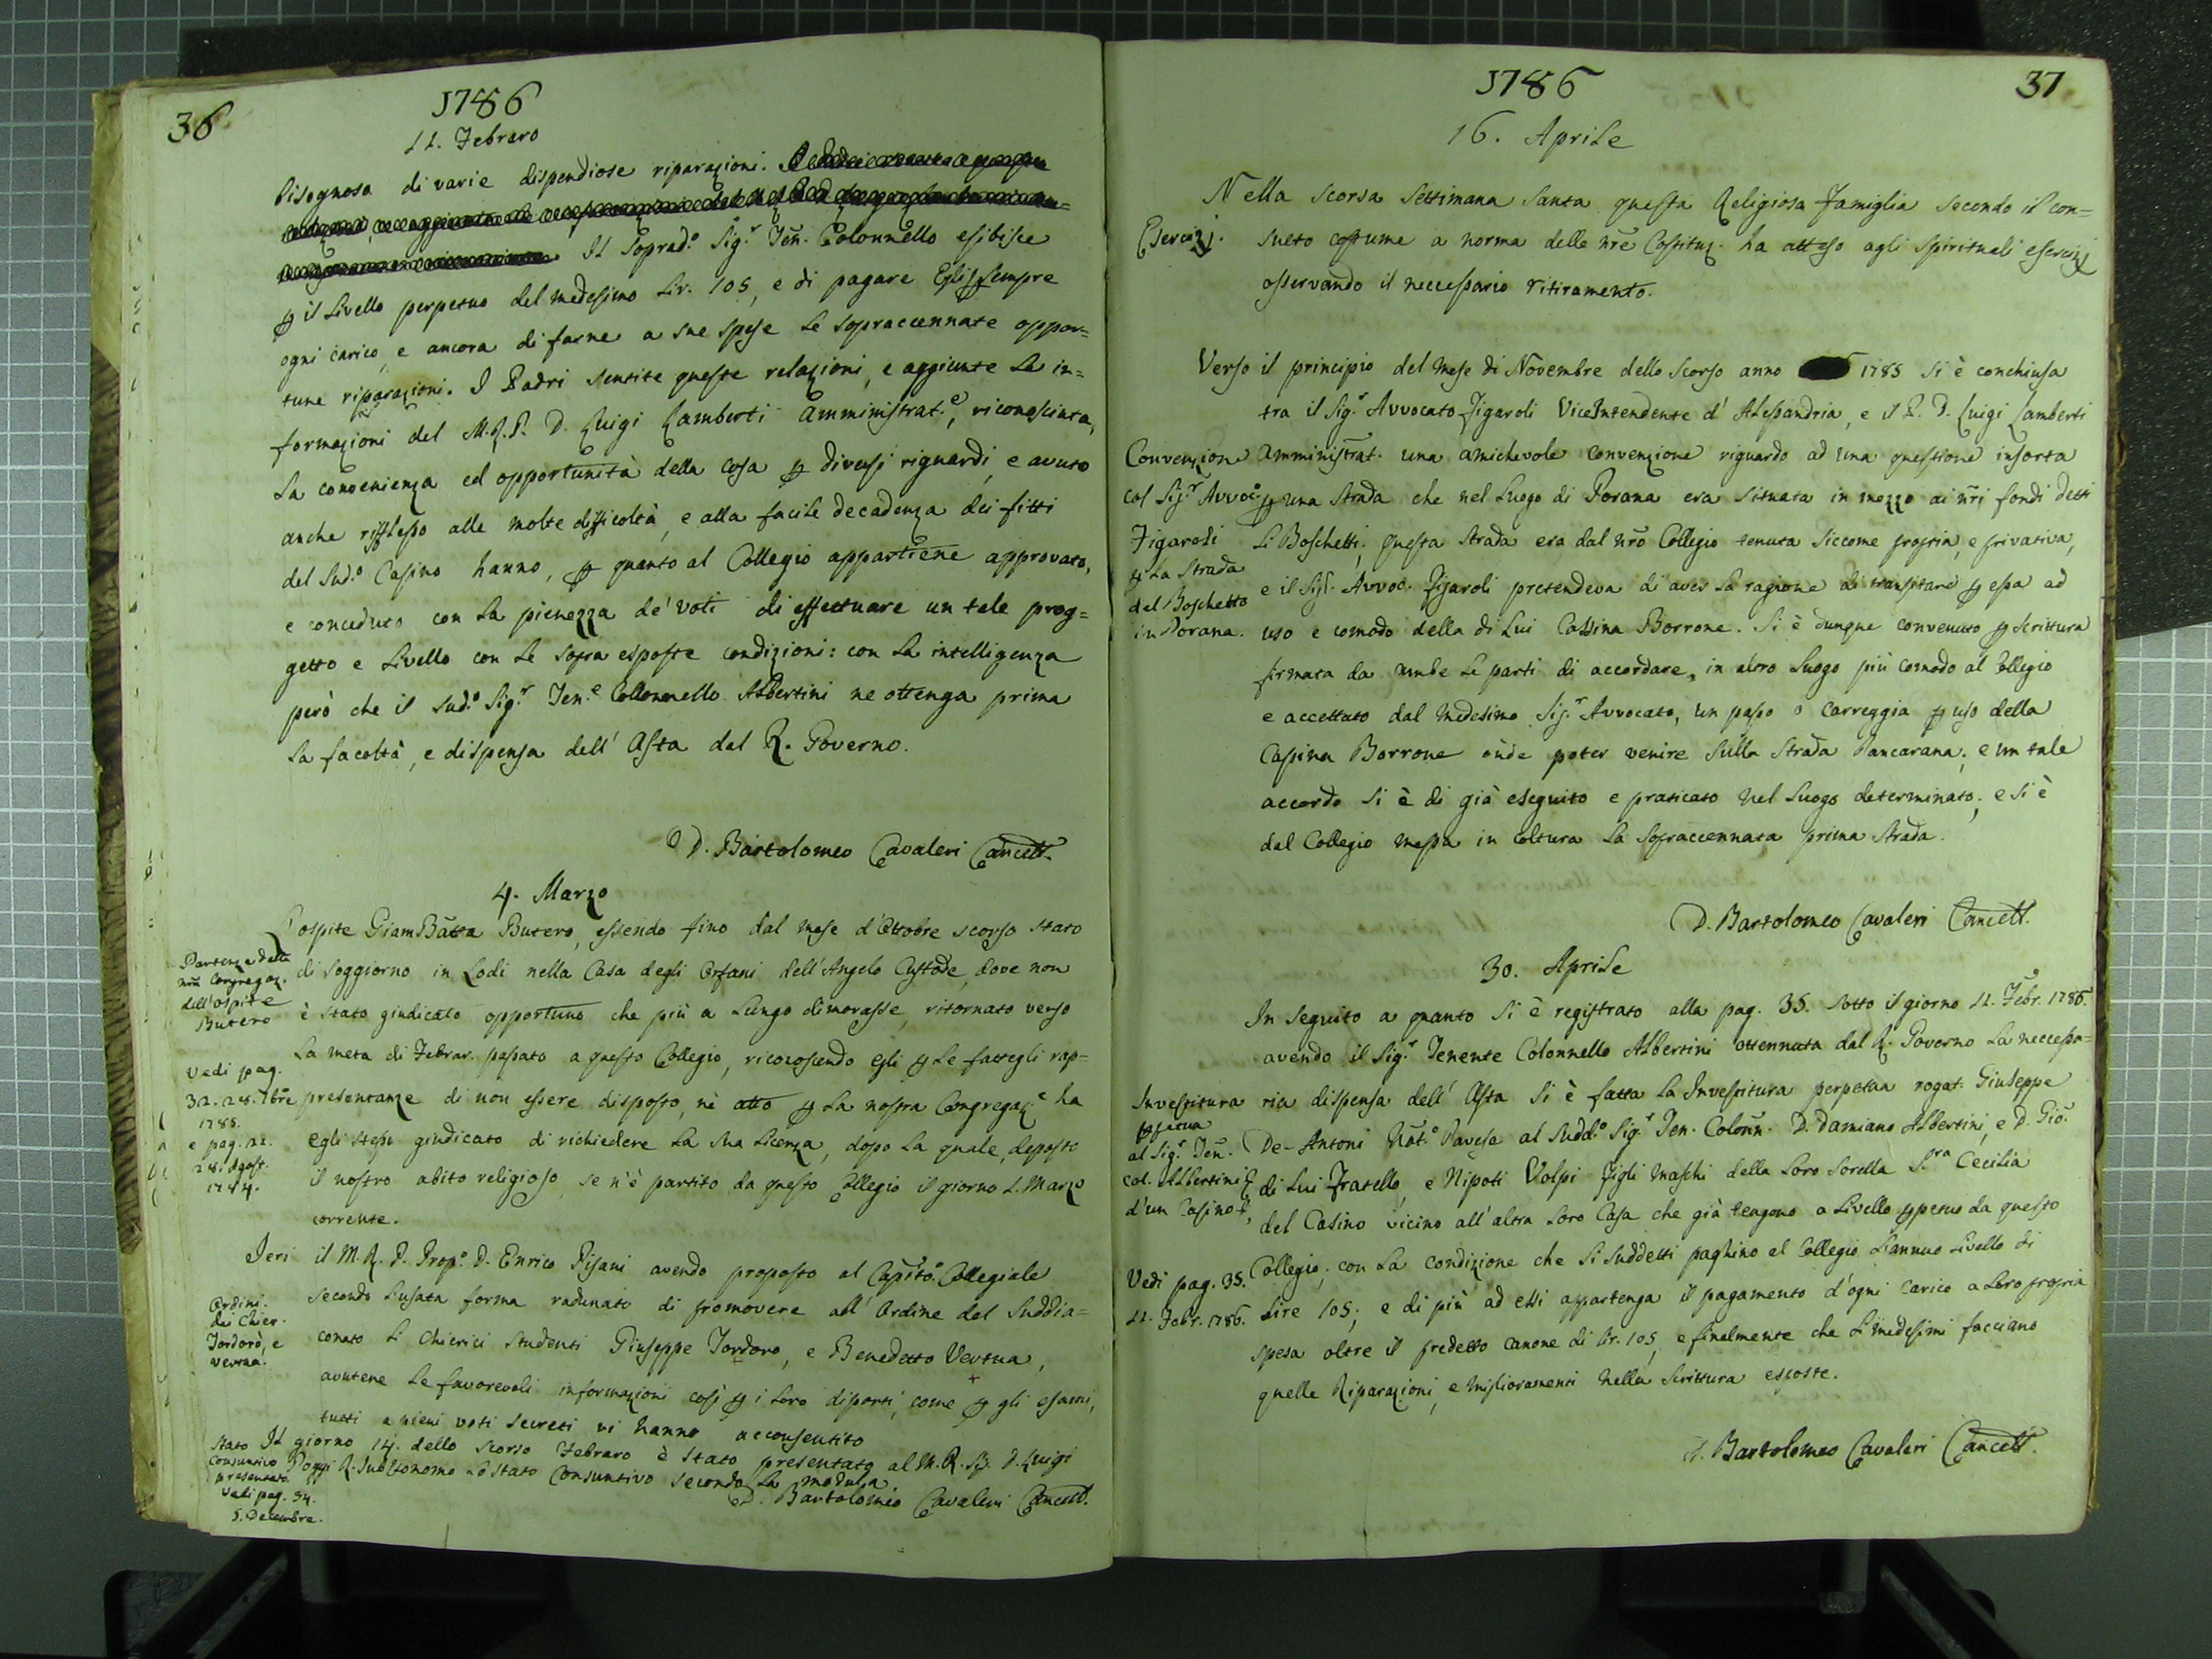 36
1786
11. Febraro
bisognosa di varie dispendiose riparazioni.
Il soprad.o Sig.r Ten. Colonnello esibisce
ꝑ il Livello perpetuo del medesimo Lir. 105, e di pagare Egli sempre
ogni carico, e ancora di farne a sue spese le sopraccennate oppor=
tune riparazioni. I Padri sentite queste relazioni, e aggiunte la in=
formazioni del M.R.P. D. Luigi Lamberti Amministrat.e, riconosciuta,
la convenienza ed opportunità della cosa ꝑ diversi riguardi, e avuto
anche riflesso alle molte difficoltà, e alla facile decadenza dei fitti
del sud.o Casino hanno, ꝑ quanto al Collegio appartiene approvato,
e conceduto con la pienezza de' voti di effettuare un tale prog=
getto e Livello con le sopra esposte condizioni: con la intelligenza
però che il sud.o Sig.r Ten.e Collonnello Albertini ne ottenga prima
la facoltà, e dispensa dell' Asta dal R. Governo.
D. Bartolomeo Cavaleri Cancell.
4. Marzo
Partenza dalla
nrã Congregaz.
dell'ospite
Butero
Vedi pag.
32. 28. 7bre
1785.
e pag. 12.
28. Agost.
1784.
L'ospite GiamBatta Butero, essendo fino dal mese d'Ottobre scorso stato
di soggiorno in Lodi nella Casa degli Orfani dell'Angelo Custode, dove non
è stato giudicato opportuno che più a lungo dimorasse, ritornato verso
la metà di Febrar. passato a questo Collegio, riconoscendo egli ꝑ le fattegli rap=
presentanze di non essere disposto, nè atto ꝑ la nostra Congregaz.e ha
egli stesso giudicato di richiedere la sua licenza, dopo la quale, deposto
il nostro abito religioso, se n'è partito da questo Collegio il giorno 2. Marzo
corrente.
Ordini
dei Chier.
Tordorò, e
Vertua.
Jeri il M.R.P. Prop.o D. Enrico Pisani avendo proposto al Capito.o Collegiale
secondo l'usata forma radunato di promovere all' Ordine del Suddia=
conato li Chierici studenti Giuseppe Tordoro, e Benedetto Vertua,
avutene le favorevoli informazioni così ꝑ i loro diporti, come ꝑ gli esami,
tutti a pieni voti secreti vi hanno acconsentito
Stato
Consuntivo
presentato.
Vedi pag. 34.
5. Decembre.
Il giorno 14. dello scorso Febraro è stato presentato al M.R. Sig. D. Luigi
Poggi R. SubEconomo lo stato Consuntivo secondo la modula.
D. Bartolomeo Cavaleri Cancell.
1786
37
16. Aprile
Esercizj.
Nella scorsa Settimana Santa questa Religiosa Famiglia secondo il con=
sueto costume a norma delle nrẽ Costituz. ha atteso agli spirituali esercizj
osservando il neccessario ritiramento.
Convenzione
col Sig.r Avvoc.o
Figaroli
ꝑ la strada
del Boschetto
in Porana.
Verso il principio del mese di Novembre dello scorso anno 1785 si è conchiusa
tra il Sig.r Avvocato Figaroli ViceIntendente d' Alessandria, e il P. D. Luigi Lamberti
Amministrat. una amichevole convenzione riguardo ad una questione insorta
ꝑ una strada che nel luogo di Porana era situata in mezzo ai nrĩ fondi detti
Li Boschetti; questa strada era dal nrõ Collegio tenuta siccome propria, e privativa,
e il Sig.r Avvoc. Figaroli pretendeva di aver la ragione di transitare ꝑ essa ad
uso e comodo della di lui Cassina Borrone. Si è dunque convenuto ꝑ scrittura
firmata da ambe le parti di accordare, in altro luogo più comodo al Collegio
e accettato dal medesimo Sig.r Avvocato, un passo o carreggia ꝑ uso della
Cassina Borrone onde poter venire sulla strada Pancarana; e un tale
accordo si è di già eseguito e praticato nel luogo determinato; e si è
dal Collegio messa in coltura la sopraccennata prima strada.
D. Bartolomeo Cavaleri Cancell.
30. Aprile
Investitura
al Sig.r Ten.
Col. Albertini
d'un Casino
Vedi pag. 35.
11. Febr. 1786.
In seguito a quanto si è registrato alla pag. 35. sotto il giorno 11. Febr. 1786.
avendo il Sig.r Tenente Colonnello Albertini ottennuta dal R. Governo la neccessa=
ria dispensa dell' Asta si è fatta la Investitura perpetua rogat. Giuseppe
De-Antoni Not.o Pavese al sudd.o Sig.r Ten. Colonn. D. Damiano Albertini, e D. Gio.
di lui Fratello, e Nipoti Volpi figli maschi della loro sorella S.ra Cecilia
del Casino vicino all'altra loro Casa che già tengono a Livello ꝑpetuo da questo
Collegio; con la condizione che li suddetti paghino al Collegio l'annuo Livello di
Lire 105; e di più ad essi appartenga il pagamento d'ogni carico a loro propria
spesa oltre il predetto canone di lir. 105, e finalmente che li medesimi facciano
quelle Riparazioni, e miglioramenti nella scrittura esposte.
D. Bartolomeo Cavaleri Cancell.